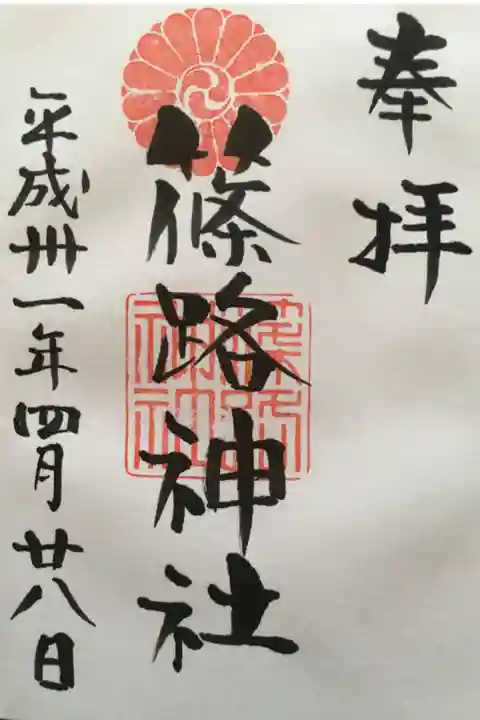 奉拝
篠路神社
平成卅一年四月廿八日
篠路神社